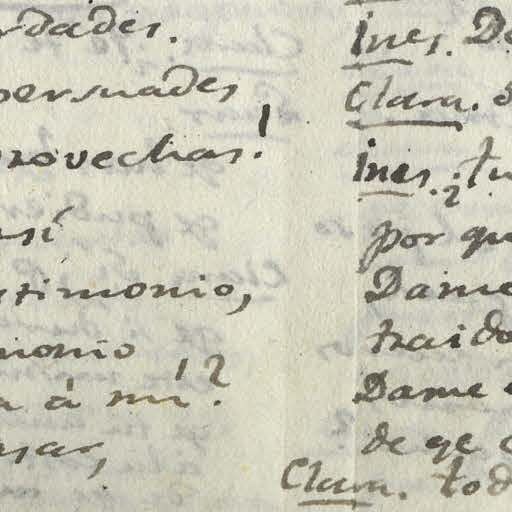 rdades.
persuades
provechas!
así
stimonio,
monio
a á mi!?
usar,
Ines. De
Clara.
Ines. ¿tu
por qu
Dame
traido
Dame
de qe
Clara. tod